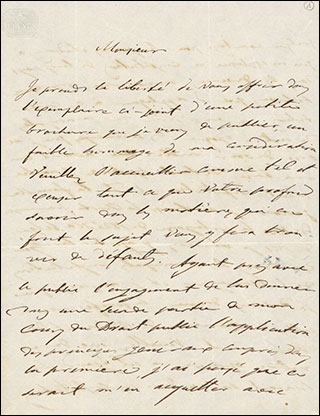 Monsieur
Je prends la liberté de vous offrir dans
l'exemplaire ci-joint d'une petite
brochure que je viens de publier, un
faible hommage de ma considération
Veuillez l'accueillir comme tel et
excuser tout ce que votre profond
savoir dans les matières qui en
font le sujet vous y fera trou
ver de défauts. Ayant pris avec
le public l'engagement de lui donner
une seconde partie de mon
Cours de Droit public l'application
des principes généraux compris dans
la première j'ai pensé que ce
serait m'en acquitter avec